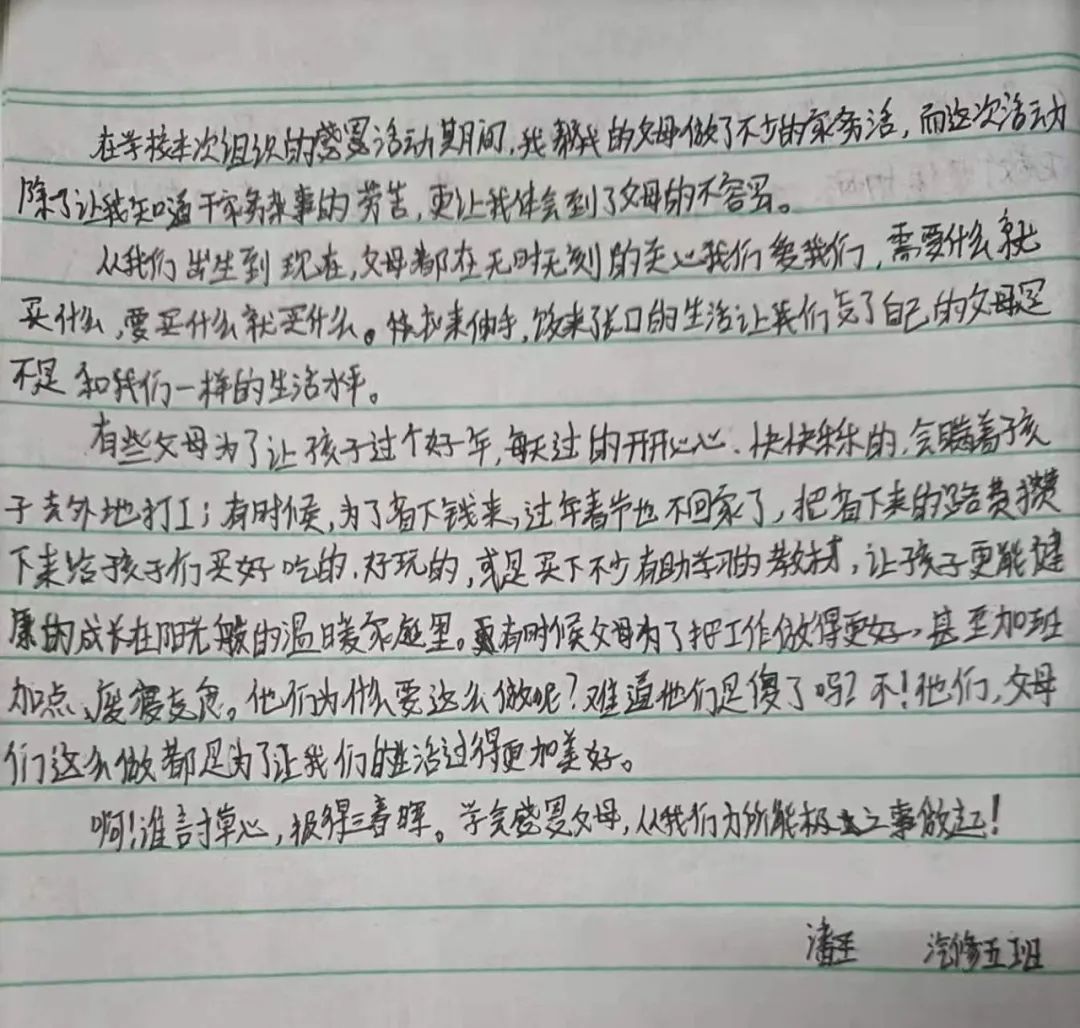 在学校本次组织的感恩活动期间,我帮我的父母做了不少的家务活,而这次活动
除了让我知道干家务杂事的劳苦,更让我体会到了父母的不容易。
从我们出生到现在,父母都在无时无刻的关心我们爱我们,需要什么就
买什么,要买什么就买什么。 来伸手,饭来张口的生活让我们忘了自己的父母是
不是和我们一样的生活水平。
有些父母为了让孩子过个好年,每天过的开开心心、快快乐乐的,会瞒着孩
子去外地打工;有时候,为了省下钱来,过年春节也不回家了,把省下来的路费攒
下来给孩子们买好吃的,好玩的,或是买下不少有助学习的教材,让孩子更能健
康的成长在阳光般的温暖家庭里。更有时候父母为了把工作做得更好,甚至加班
加点、废寝忘食。他们为什么要这么做呢?难道他们是傻了吗?不!他们,父母
们这么做都是为了让我们的生活过得更加美好。
啊!谁言寸草心,报得三春晖。学会感恩父母,从我们力所能极之事做起!
潘 汽修五班